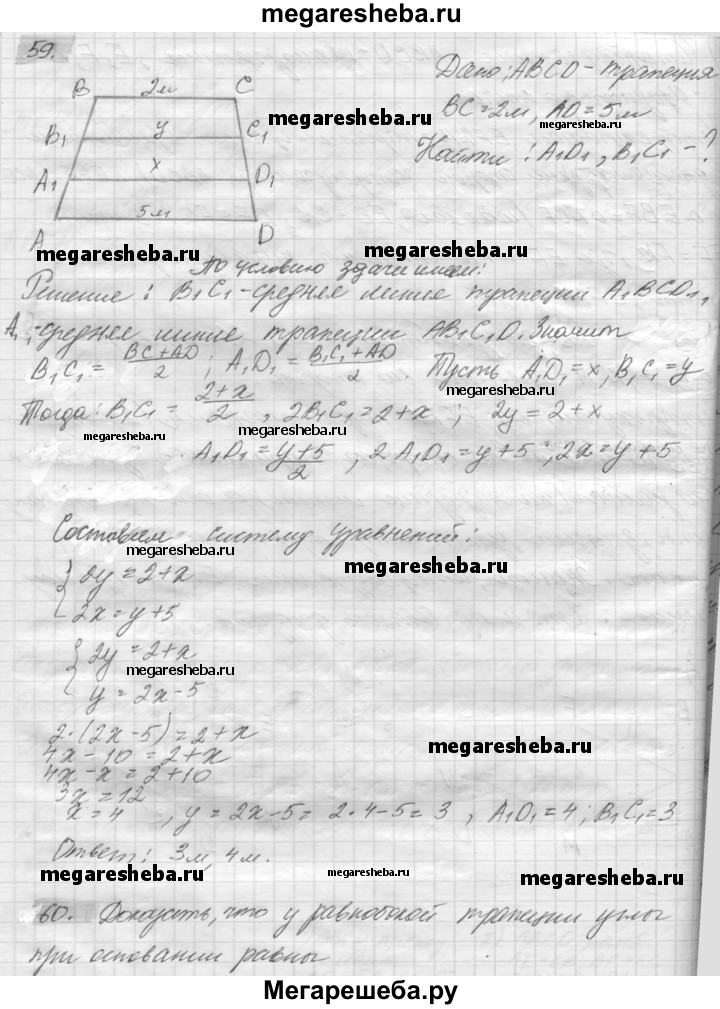 megaresheba.ru
59.
Дано: ABCD - трапеция
B 2м C
BC = 2м, AD = 5м
megaresheba.ru
megaresheba.ru
B₁ y C₁
Найти: A₁D₁, B₁C₁ - ?
A₁ x D₁
5м
A D
megaresheba.ru
megaresheba.ru
По условию здачи имеем:
Решение: B₁C₁ - средняя линия трапеции A₁BCD₁,
A₁ - средняя линия трапеции AB₁C₁D. Значит
B₁C₁ = BC + AD / 2 ; A₁D₁ = B₁C₁ + AD / 2 . Пусть A₁D₁ = x, B₁C₁ = y
megaresheba.ru
Тогда: B₁C₁ = 2+x / 2 , 2B₁C₁ = 2+x ; 2y = 2+x
megaresheba.ru
megaresheba.ru
A₁D₁ = y+5 / 2 , 2A₁D₁ = y+5 ; 2x = y+5
megaresheba.ru
Составим систему уравнений:
megaresheba.ru
megaresheba.ru
{ 2y = 2+x
2x = y+5
{ 2y = 2+x
megaresheba.ru
y = 2x-5
2·(2x-5) = 2+x
megaresheba.ru
4x - 10 = 2+x
4x - x = 2+10
3x = 12
x = 4 , y = 2x-5 = 2·4-5 = 3 , A₁D₁ = 4 ; B₁C₁ = 3
Ответ: 3м, 4м.
megaresheba.ru
megaresheba.ru
megaresheba.ru
60. Доказать, что у равнобокой трапеции углы
при основании равны
Мегарешеба.ру